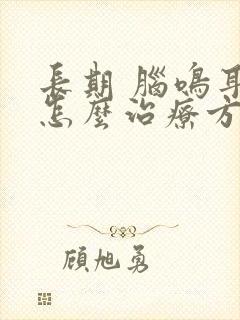 長期 腦鳴耳
怎麼治療方
顧旭勇